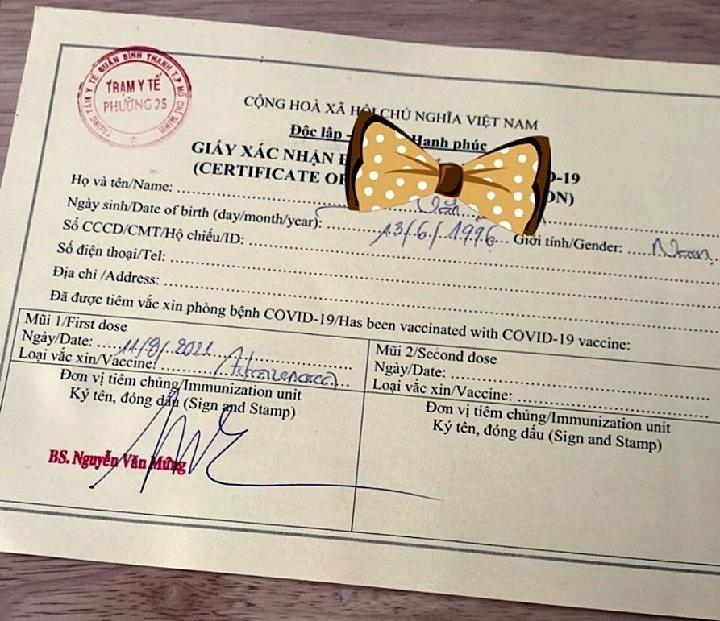 TRUNG TÂM Y TẾ QUẬN BÌNH THẠNH T.P HỒ CHÍ MINH
TRẠM Y TẾ
PHƯỜNG 25
CỘNG HOÀ XÃ HỘI CHỦ NGHĨA VIỆT NAM
Độc lập - Hạnh phúc
GIẤY XÁC NHẬN D-19
(CERTIFICATE OF ON)
Họ và tên/Name:
Ngày sinh/Date of birth (day/month/year): 13/6/1996 Giới tính/Gender: Nam
Số CCCD/CMT/Hộ chiếu/ID:
Số điện thoại/Tel:
Địa chỉ /Address:
Đã được tiêm vắc xin phòng bệnh COVID-19/Has been vaccinated with COVID-19 vaccine:
Mũi 1/First dose
Ngày/Date: 11/9/2021
Loại vắc xin/Vaccine:
Đơn vị tiêm chủng/Immunization unit
Ký tên, đóng dấu (Sign and Stamp)
BS. Nguyễn Văn Mừng
Mũi 2/Second dose
Ngày/Date:
Loại vắc xin/Vaccine:
Đơn vị tiêm chủng/Immunization unit
Ký tên, đóng dấu (Sign and Stamp)